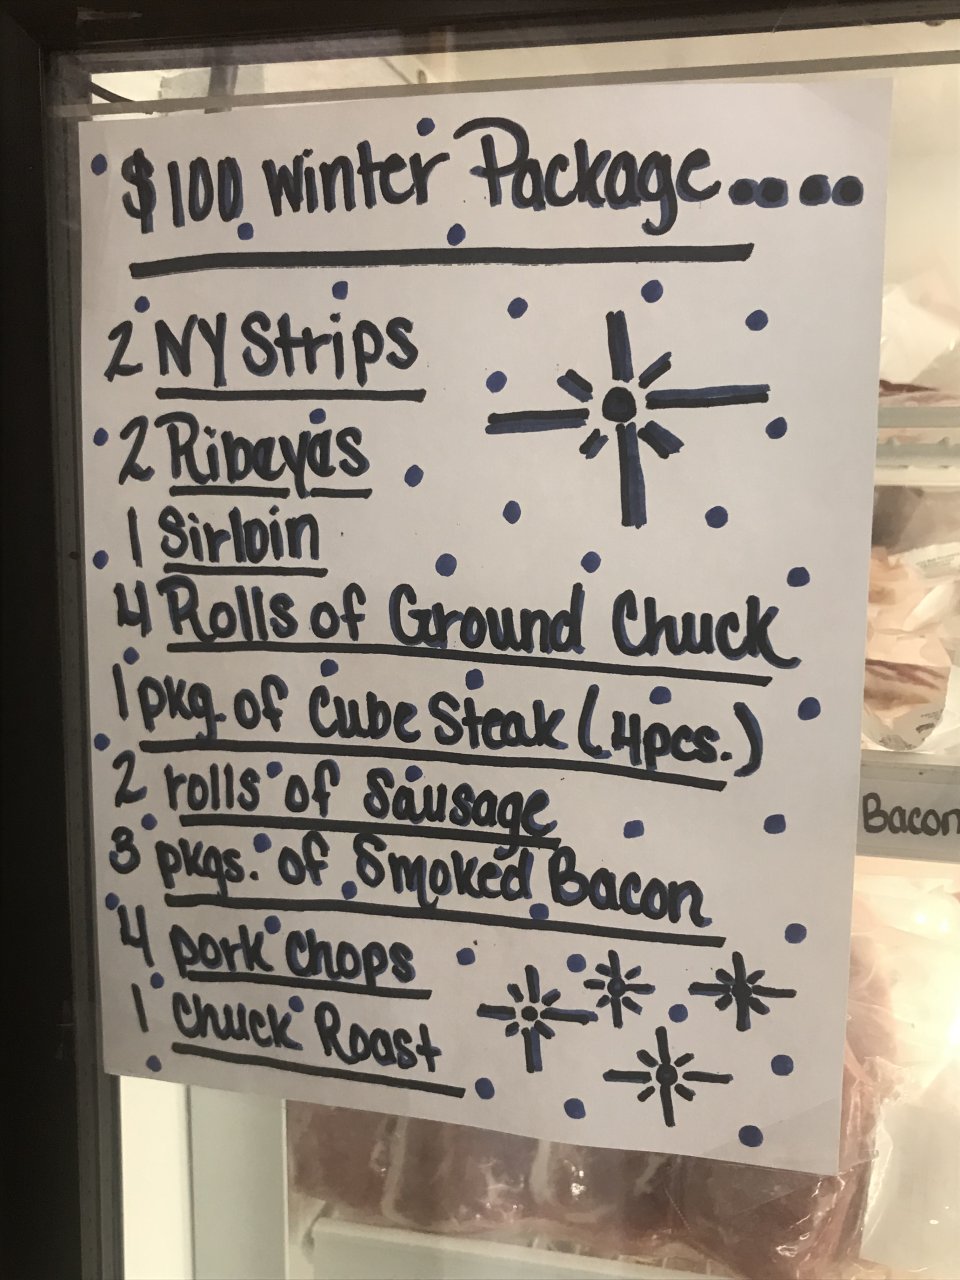 $100 Winter Package....
2 NY Strips
2 Ribeyes
1 Sirloin
4 Rolls of Ground Chuck
1 pkg. of Cube Steak (4pcs.)
2 rolls of Sausage
3 pkgs. of Smoked Bacon
4 pork chops
1 Chuck Roast
Bacon